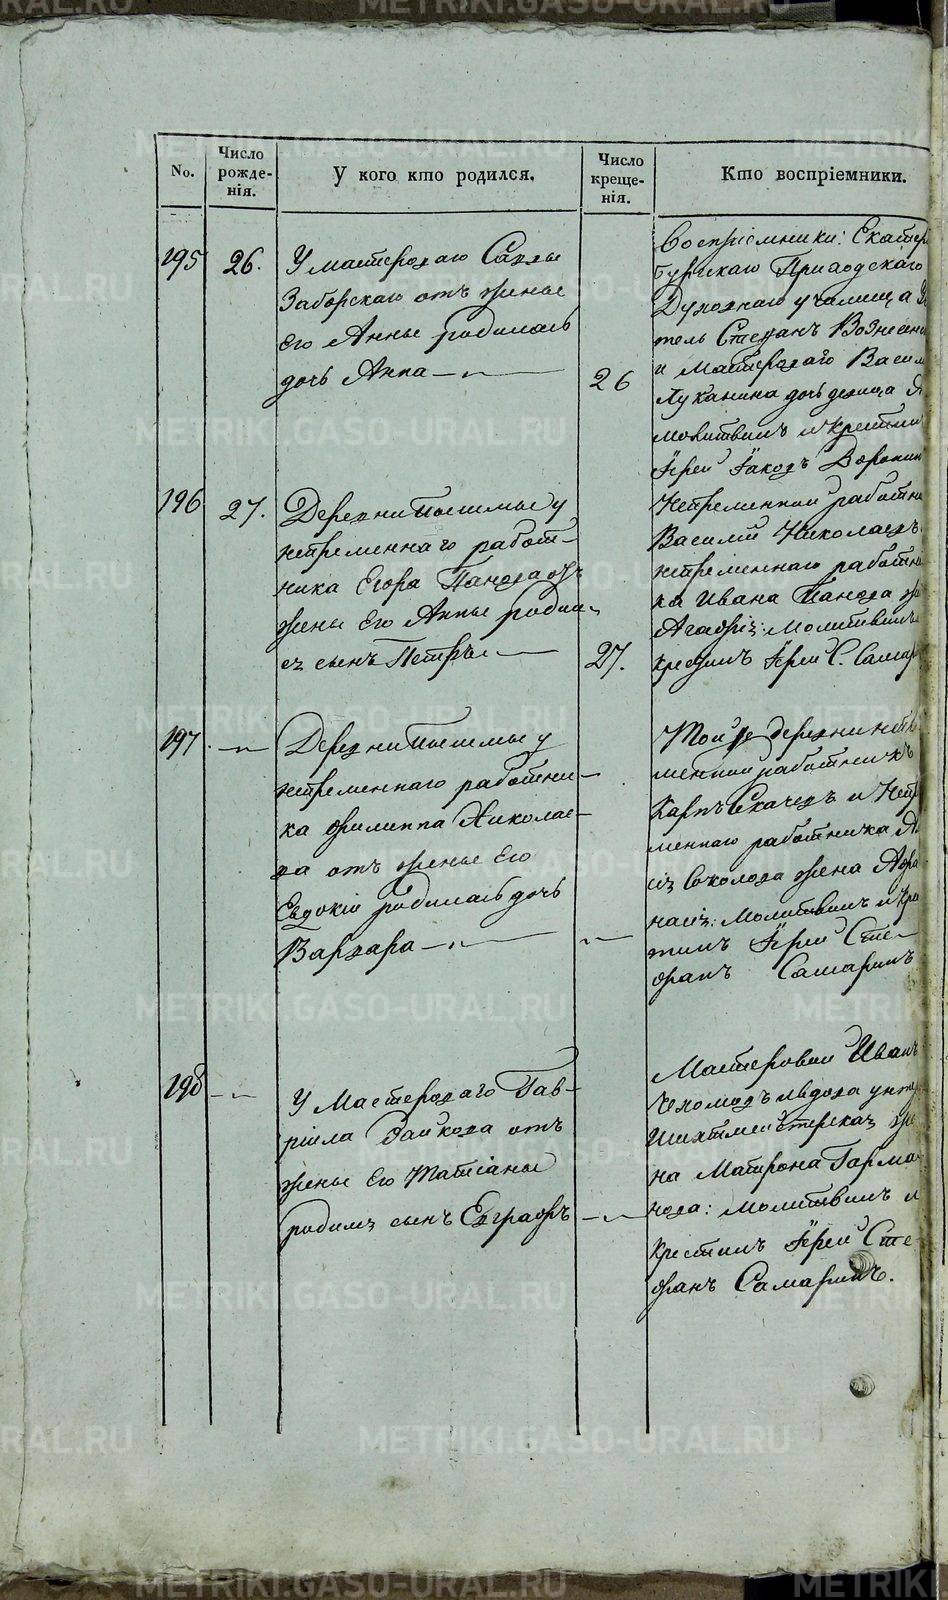 No.
Число
рожде-
нія.
У кого кто родился.
Число
креще-
нія.
Кто воспріемники.
195
26.
У мастероваго Саввы
Заборскаго отъ жены
Его Анны родилась
дочь Анна
26
Воспріемники: Екатери
бургскаго Приходскаго
Духовнаго училища
тель Степанъ Вознесен
и Мастероваго Васил
Луканина дочь девица
молитвилъ и крестилъ
Іерей Іаковъ Воронин
196
27.
Деревни Пышмы у
непременнаго работ-
ника Егора Панова отъ
жены Его Анны родил-
ся сынъ Петръ
27.
Непременной работни
Василій Николаевъ
непременнаго работни
ка Ивана Панова же
Агафія: Молитвилъ
крестилъ Іерей С. Самар
197
Деревни Пышмы у
непременнаго работни-
ка Филиппа Николае-
ва отъ жены Его
Евдокіи родилась дочь
Варвара
Той же деревни непре
менной работникъ
Карпъ Скачевъ и Непре
меннаго работника
Соколова жена Афа
насія: Молитвилъ и Кре
тилъ Іерей Сте-
фанъ Самаринъ
198
У Мастероваго Гав-
ріила Зайкова отъ
жены Его Татіаны
родился сынъ Евграфъ
Мастеровой Иванъ
вдова унтеръ
Шихтмейстерская же
на Матрона Гарма
чова: Молитвилъ и
Крестилъ Іерей Сте-
фанъ Самаринъ.
METRIKI.GASO-URAL.RU